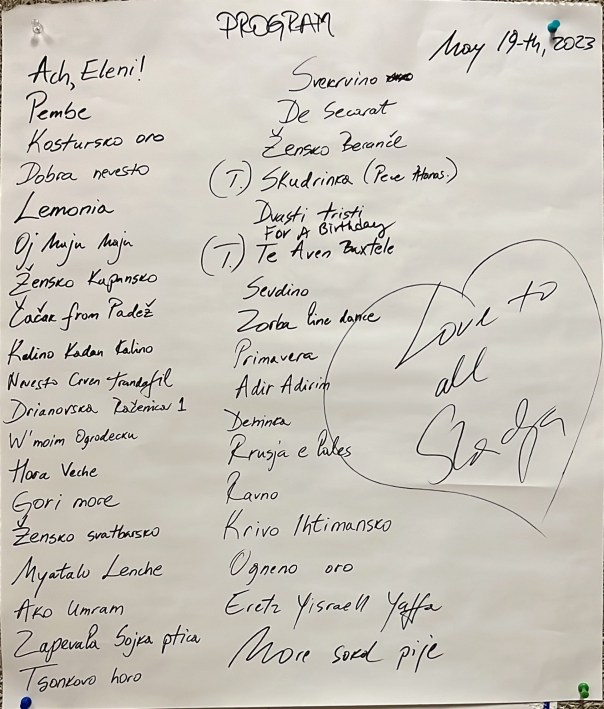 PROGRAM
May 19-th, 2023
Ach, Eleni!
Pembe
Kostursko oro
Dobra nevesto
Lemonia
Oj Maju Maju
Žensko Kapansko
Čačak from Padež
Kalino Kadan Kalino
Nevesto Crven Trandafil
Drianovska Raženica 1
W'moim Ogrodecku
Hora Veche
Gori more
Žensko svatbarsko
Myatalo Lenche
Ako Umram
Zapevala Sojka ptica
Tsonkovo horo
Svekrvino
De Secarat
Žensko Beranče
(T.) Skudrinka (Pece Atanas.)
Dvasti tristi
For A Birthday
(T.) Te Aven Baxtele
Sevdino
Zorba line dance
Primavera
Adir Adirim
Deninka
Rrusja e Vales
Ravno
Krivo Ihtimansko
Ogneno oro
Eretz Yisraell Yaffa
More sokol pije
Love to
all
Sladja